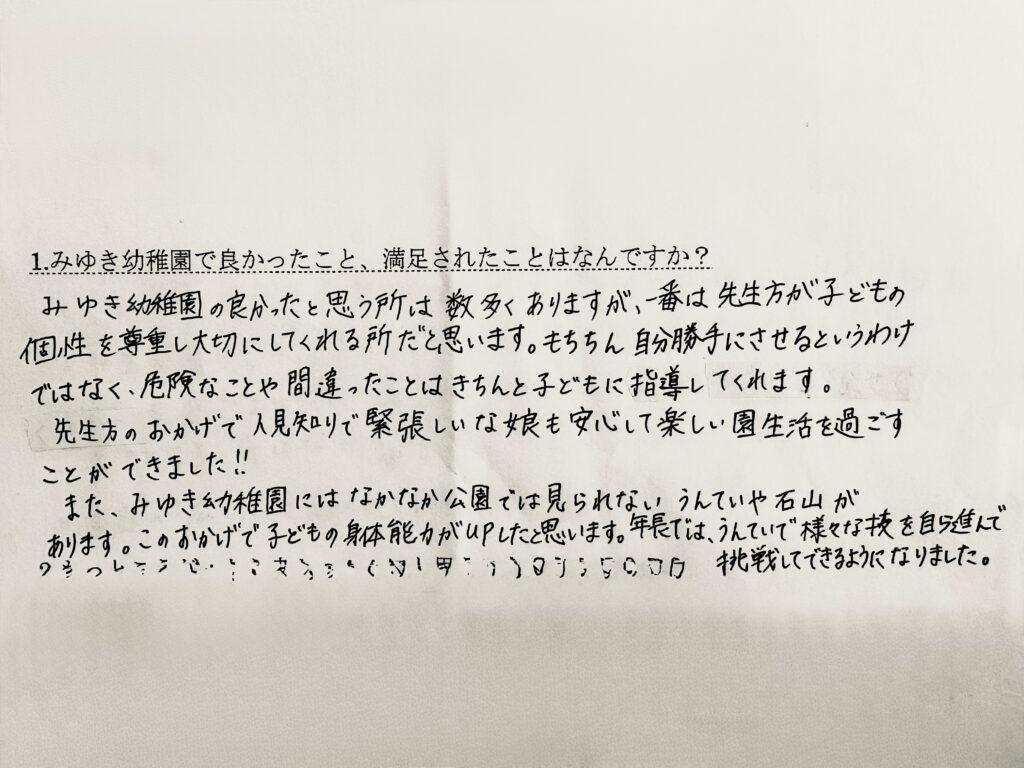 1.みゆき幼稚園で良かったこと、満足されたことはなんですか？
みゆき幼稚園の良かったと思う所は数多くありますが、一番は先生方が子どもの
個性を尊重し大切にしてくれる所だと思います。もちちん自分勝手にさせるというわけ
ではなく、危険なことや間違ったことはきちんと子どもに指導してくれます。
先生方のおかげで人見知りで緊張しいな娘も安心して楽しい園生活を過ごす
ことができました!!
また、みゆき幼稚園にはなかなか公園では見られないうんていや石山が
あります。このおかげで子どもの身体能力がUPしたと思います。年長では、うんていで様々な技を自ら進んで
挑戦してできるようになりました。